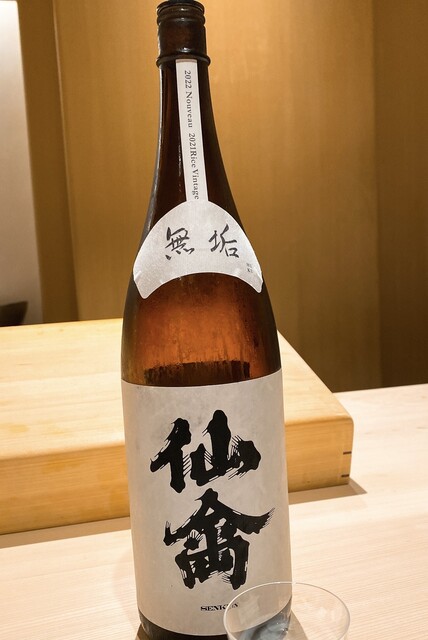 2022 Nouveau 2021 Rice Vintage
無垢
仙禽